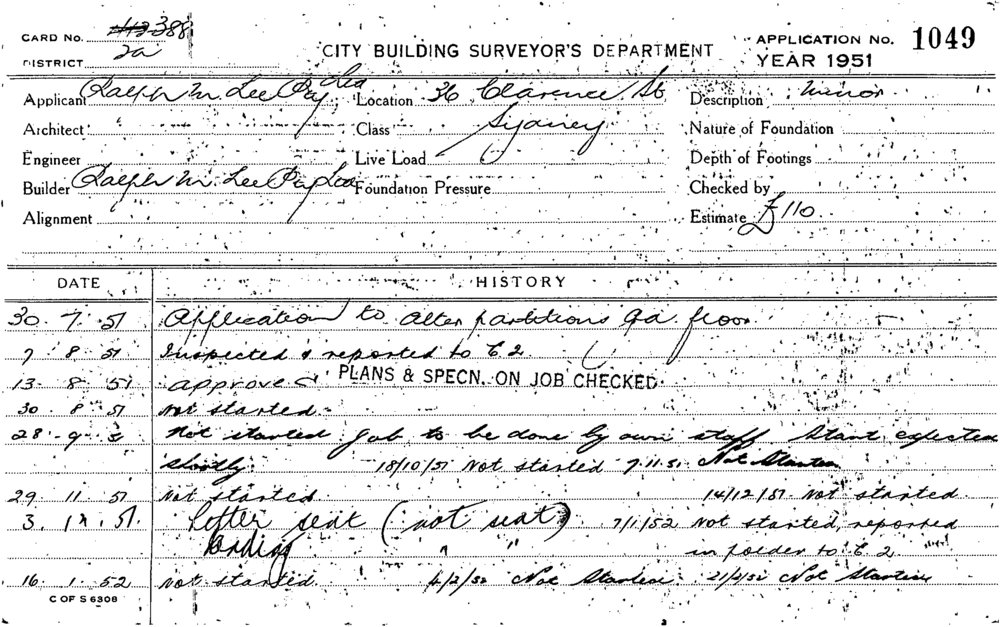 CARD No. 388
DISTRICT 2a
CITY BUILDING SURVEYOR'S DEPARTMENT
APPLICATION No. 1049
YEAR 1951
Applicant Ralph M. Lee Pty Ltd Location 36 Clarence St Description Minor
Architect Class Sydney Nature of Foundation
Engineer Live Load Depth of Footings
Builder Ralph M. Lee Pty Ltd Foundation Pressure Checked by
Alignment Estimate £110
DATE HISTORY
30 . 7 . 51 Application to alter partitions gd. floor
7 8 51 Inspected & reported to E 2
13 8 51 approved PLANS & SPECN. ON JOB CHECKED
30 8 51 Not started
28 . 9 . 5 Not started Job to be done by own staff Start expected
shortly 18/10/51 Not started 7.11.51 Not Started
29 11 51 Not started 14/12/51 Not started
3. 12. 51. Letter sent (not sent) 7/1/52 Not started, reported
" " in folder to E 2
16 . 1 . 52 Not started 4/2/52 Not Started 21/2/52 Not Started
C OF S 6308